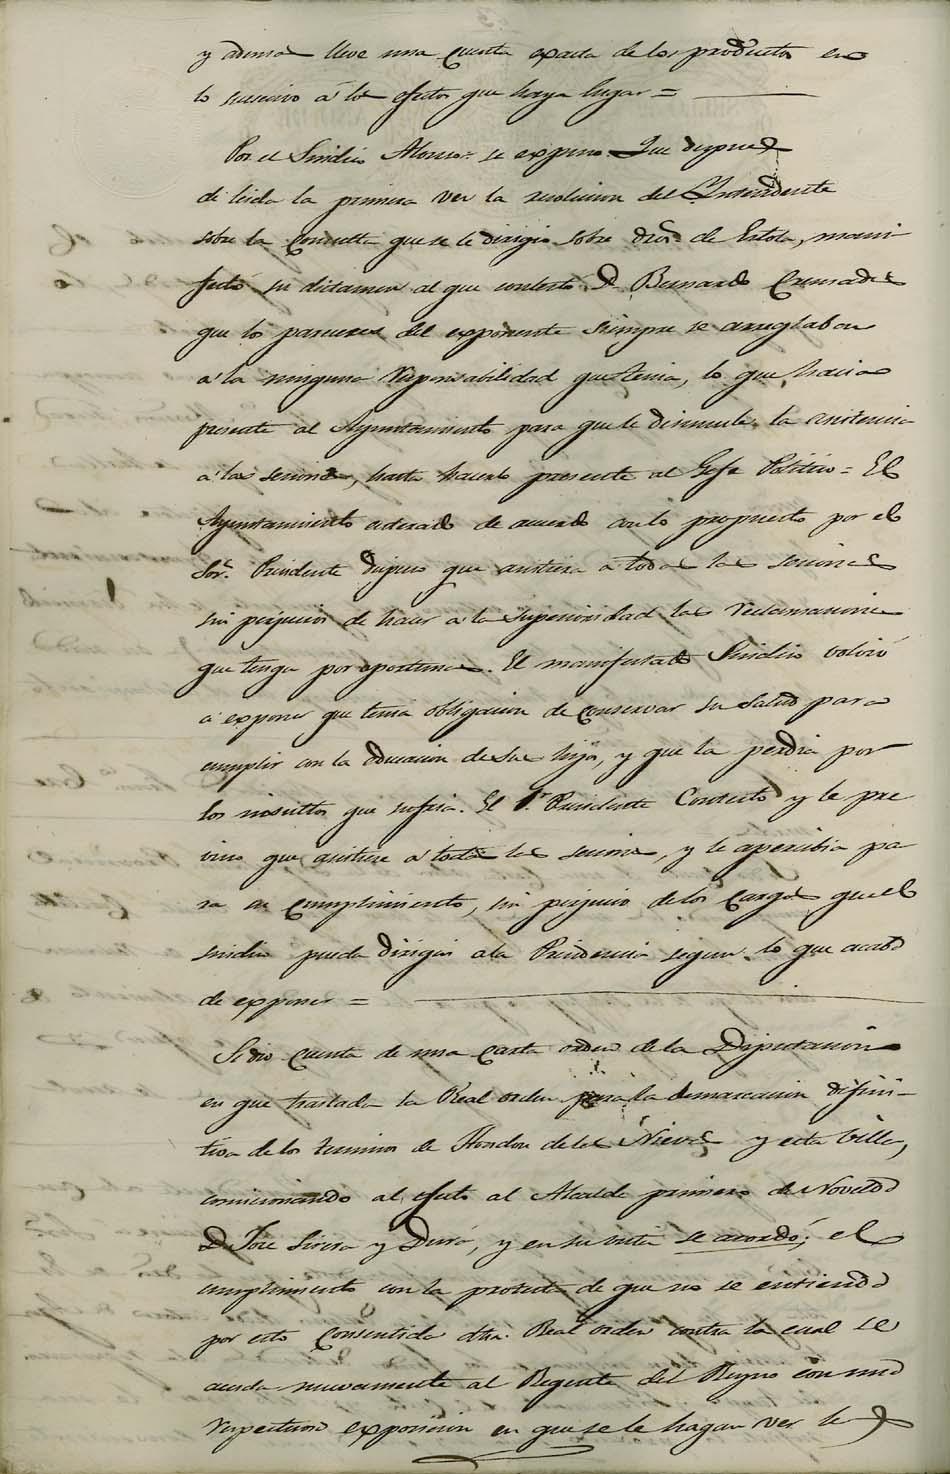 y ademas lleve una cuenta exacta de los productos en
lo sucesivo á los efectos que haya lugar =
Por el Sindico Alonso se expuso: Que despues
de leida la primera vez la resolucion del Intendente
sobre la consulta que se le dirigio sobre dros. de Estola, mani-
festó su dictamen al que contestó D. Bernardo Cremades
que los pareceres del exponente siempre se arreglaban
a la ninguna responsabilidad que tenia, lo que hacia
presente al Ayuntamiento para que le disimule la asistencia
a las sesiones, hasta hacerlo presente al Gefe Politico = El
Ayuntamiento enterado de acuerdo con lo propuesto por el
Sor. Presidente dispuso que asistiera a todas las sesiones
sin perjuicio de hacer a la Superioridad las reclamaciones
que tenga por oportunas. El manifestado Sindico volvió
a exponer que tenia obligacion de conservar su salud para
cumplir con la educacion de sus hijos, y que la perdia por
los insultos que sufria. El Sr. Presidente Contestó y le pre
vino que asistiese a todas las sesiones, y le apercibia pa
ra su cumplimiento, sin perjuicio de los cargos que el
sindico pueda dirigir a la Presidencia segun lo que acaba
de exponer =
Se dio cuenta de una carta orden de la Diputacion
en que traslada la Real orden para la demarcacion difini-
tiva de los terminos de Hondon de las Nieves y esta Villa,
comicionando al efecto al Alcalde primero de Novelda
D. Jose Sirera y Durá, y en su vista se acordó; el
cumplimiento con la protesta de que no se entienda
por esto consentida dha. Real orden contra la cual se
acuda nuevamente al Regente del Reyno con una
respectuosa exposicion en que se le hagan ver los